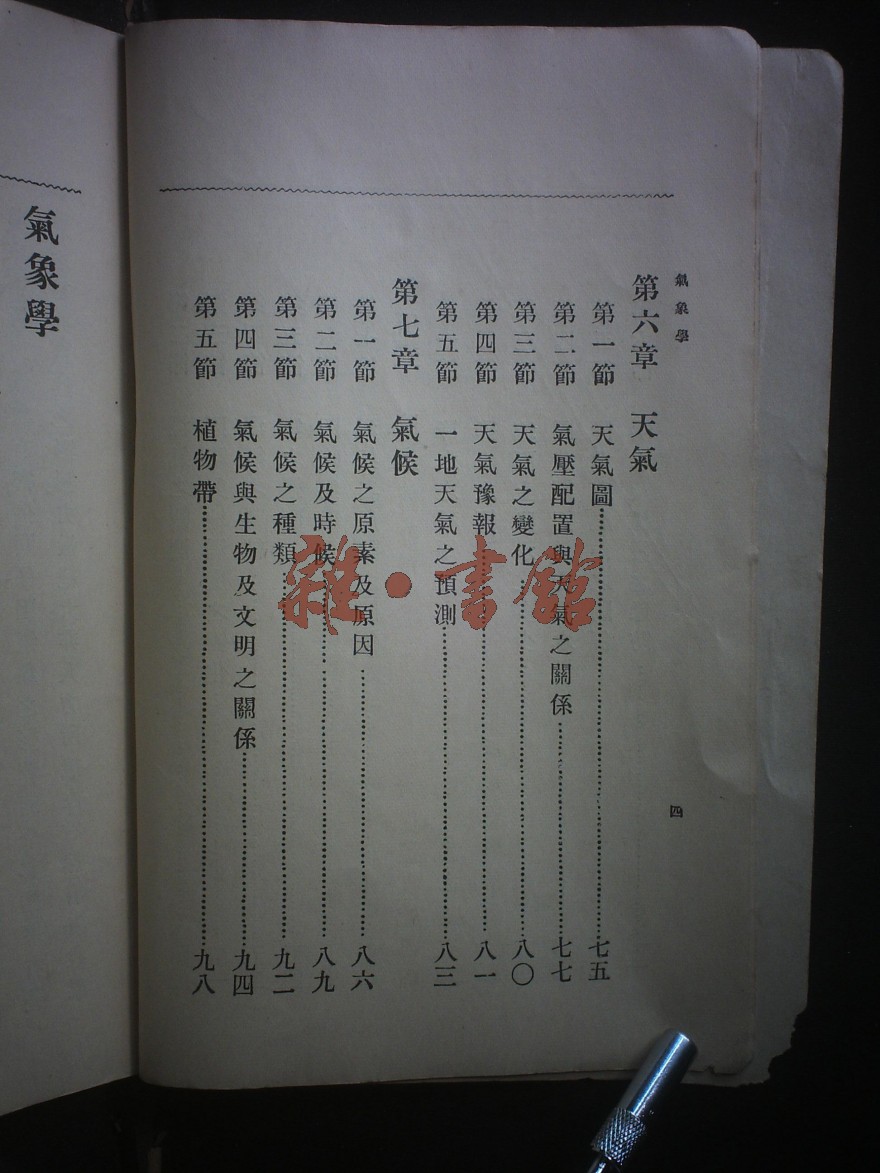 氣象學
第六章　天氣
第一節　天氣圖……七五
第二節　氣壓配置與天氣之關係……七七
第三節　天氣之變化……八〇
第四節　天氣豫報……八一
第五節　一地天氣之預測……八三
第七章　氣候
第一節　氣候之原素及原因……八六
第二節　氣候及時候……八九
第三節　氣候之種類……九二
第四節　氣候與生物及文明之關係……九四
第五節　植物帶……九八
四
氣象學
雜·書館